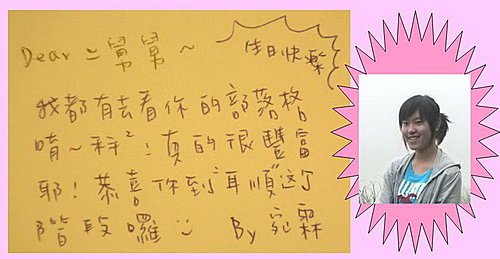 Dear 二舅舅~
生日快樂
我都有去看你的部落格
唷~科²!真的很豐富
耶!恭喜你到"耳順"這个
階段囉 By 宛霖